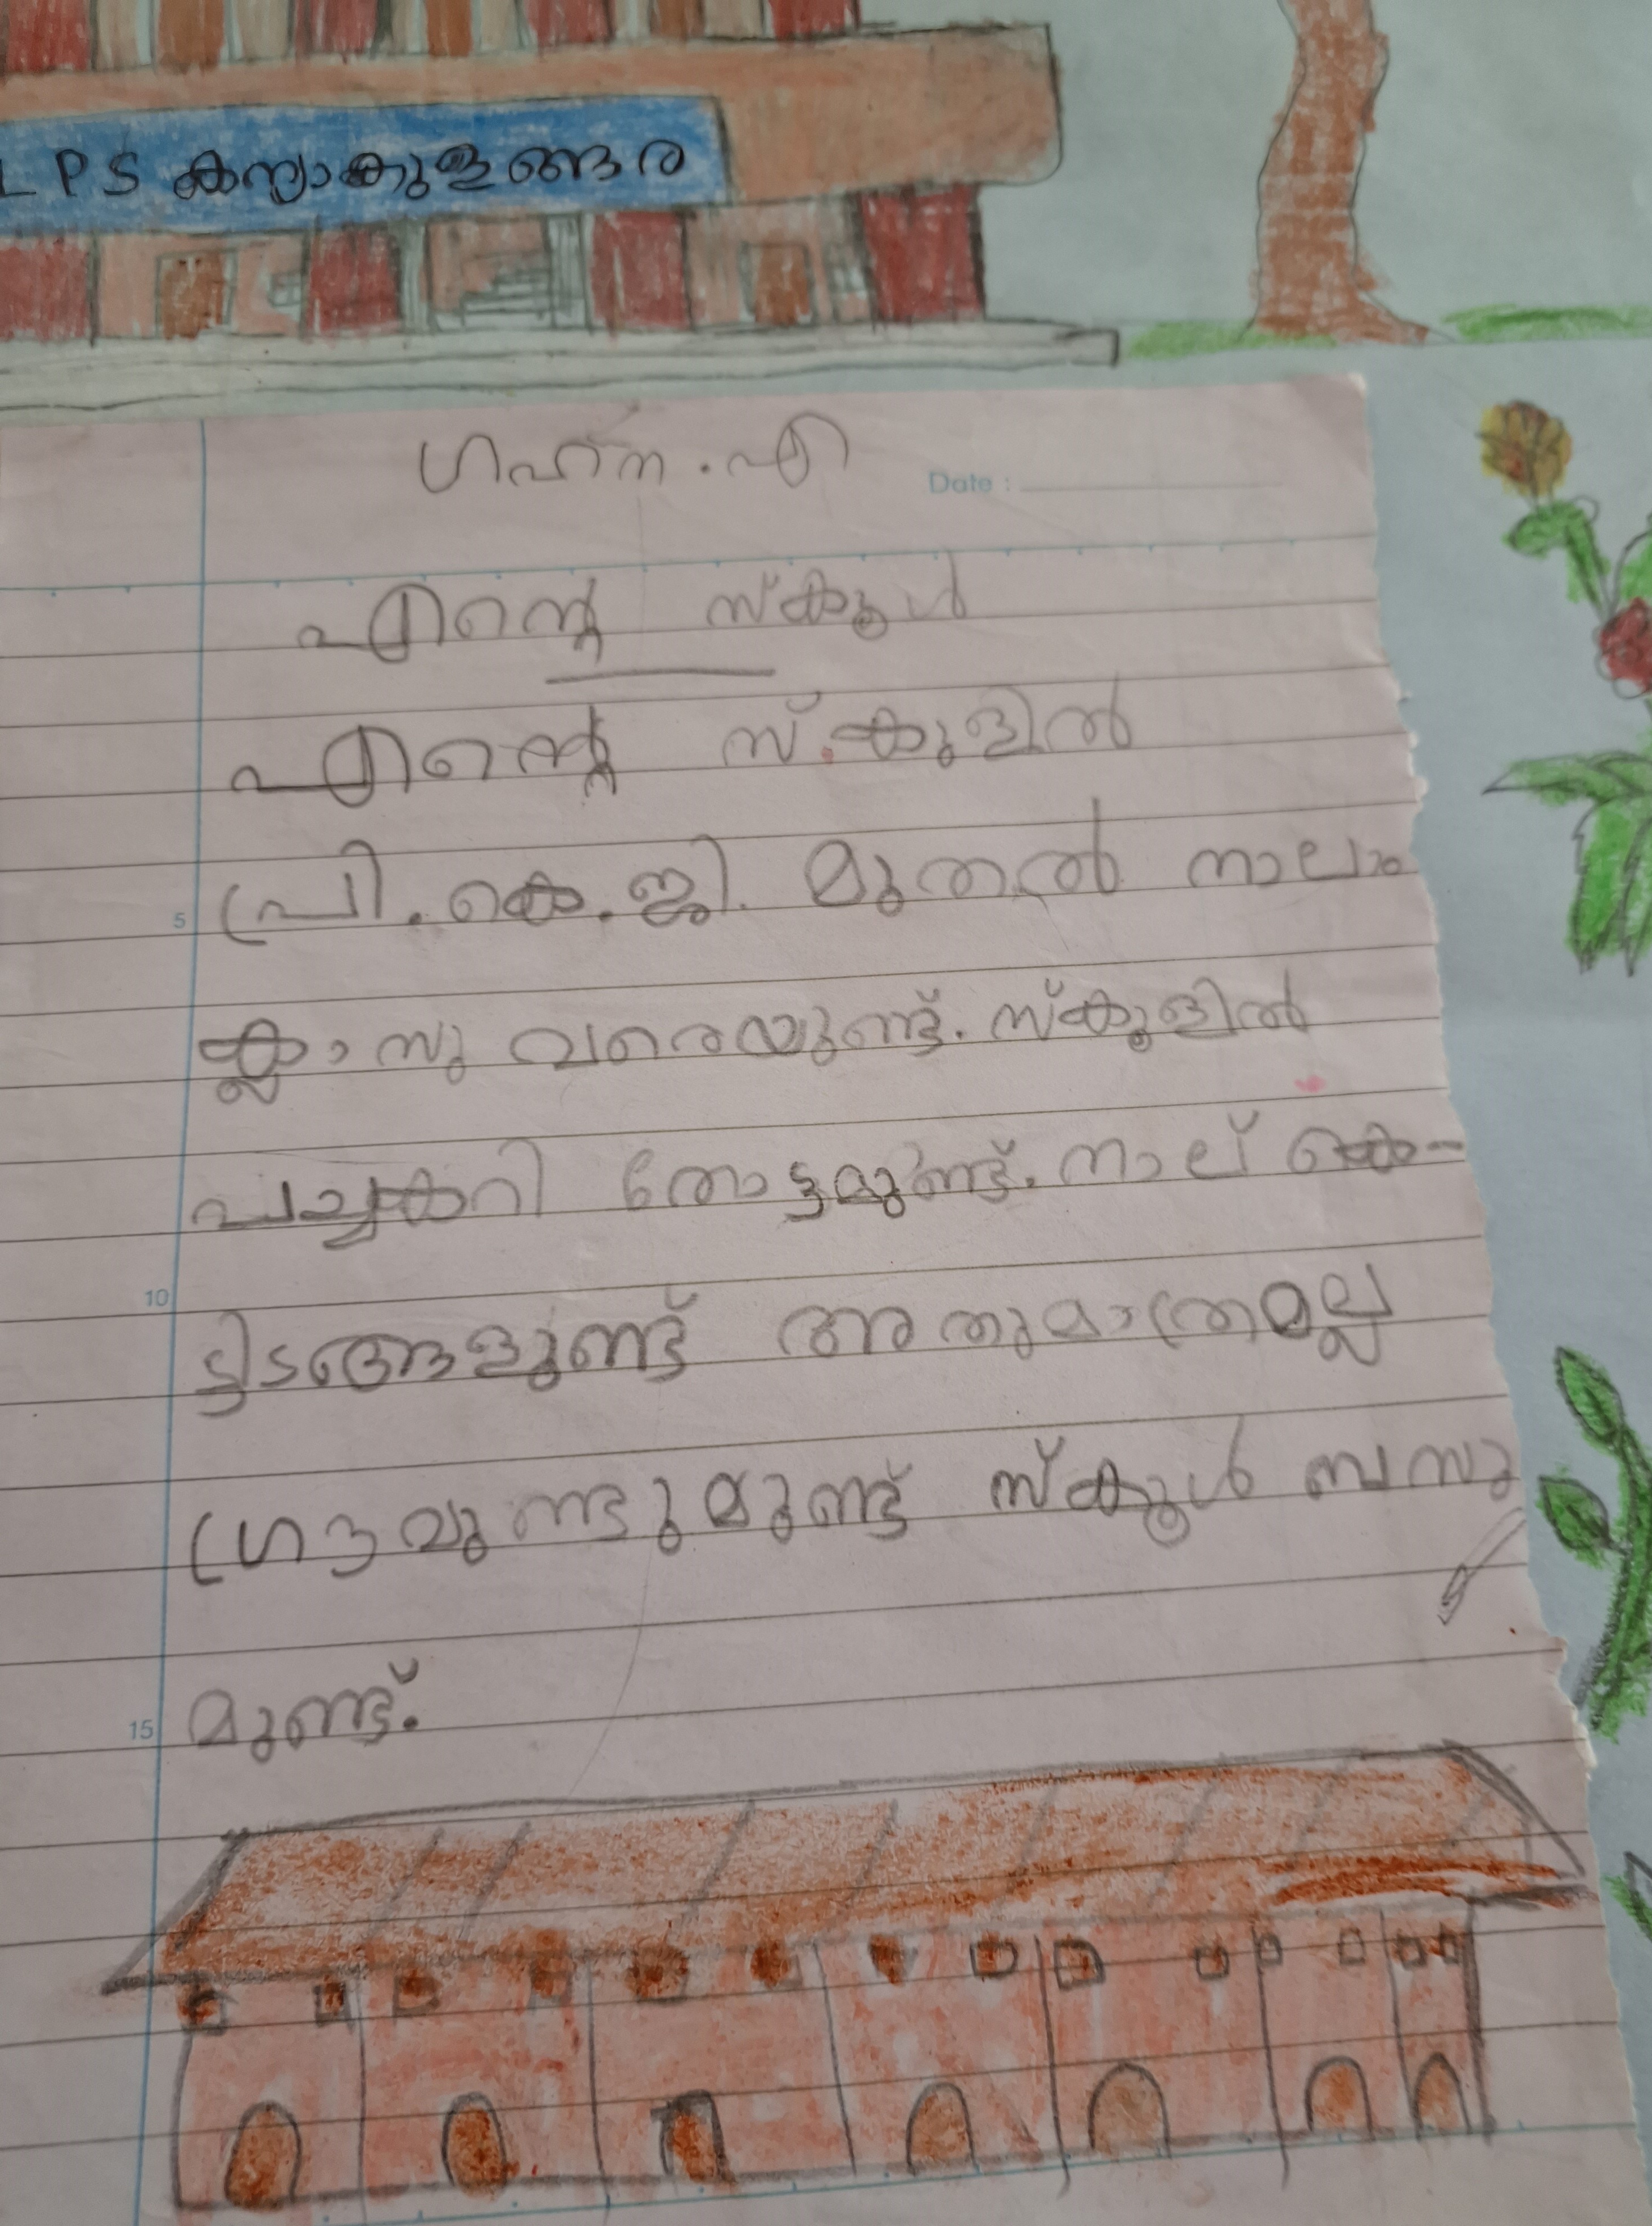 LPS കന്യാകുളങ്ങര
ഗഹന . എ
Date :
എന്റെ സ്കൂൾ
എന്റെ സ്കുളിൽ
5 പ്രി. കെ. ജി. മുതൽ നാലാം
ക്ലാസു വരെയുണ്ട്. സ്കൂളിൽ
പച്ചകറി തോട്ടമുണ്ട്. നാല് കെ-
10
ട്ടിടങ്ങളുണ്ട് അതുമാത്രമല്ല
ഗ്രൗവുണ്ടുമുണ്ട് സ്കൂൾ ബസു
15 മുണ്ട്.